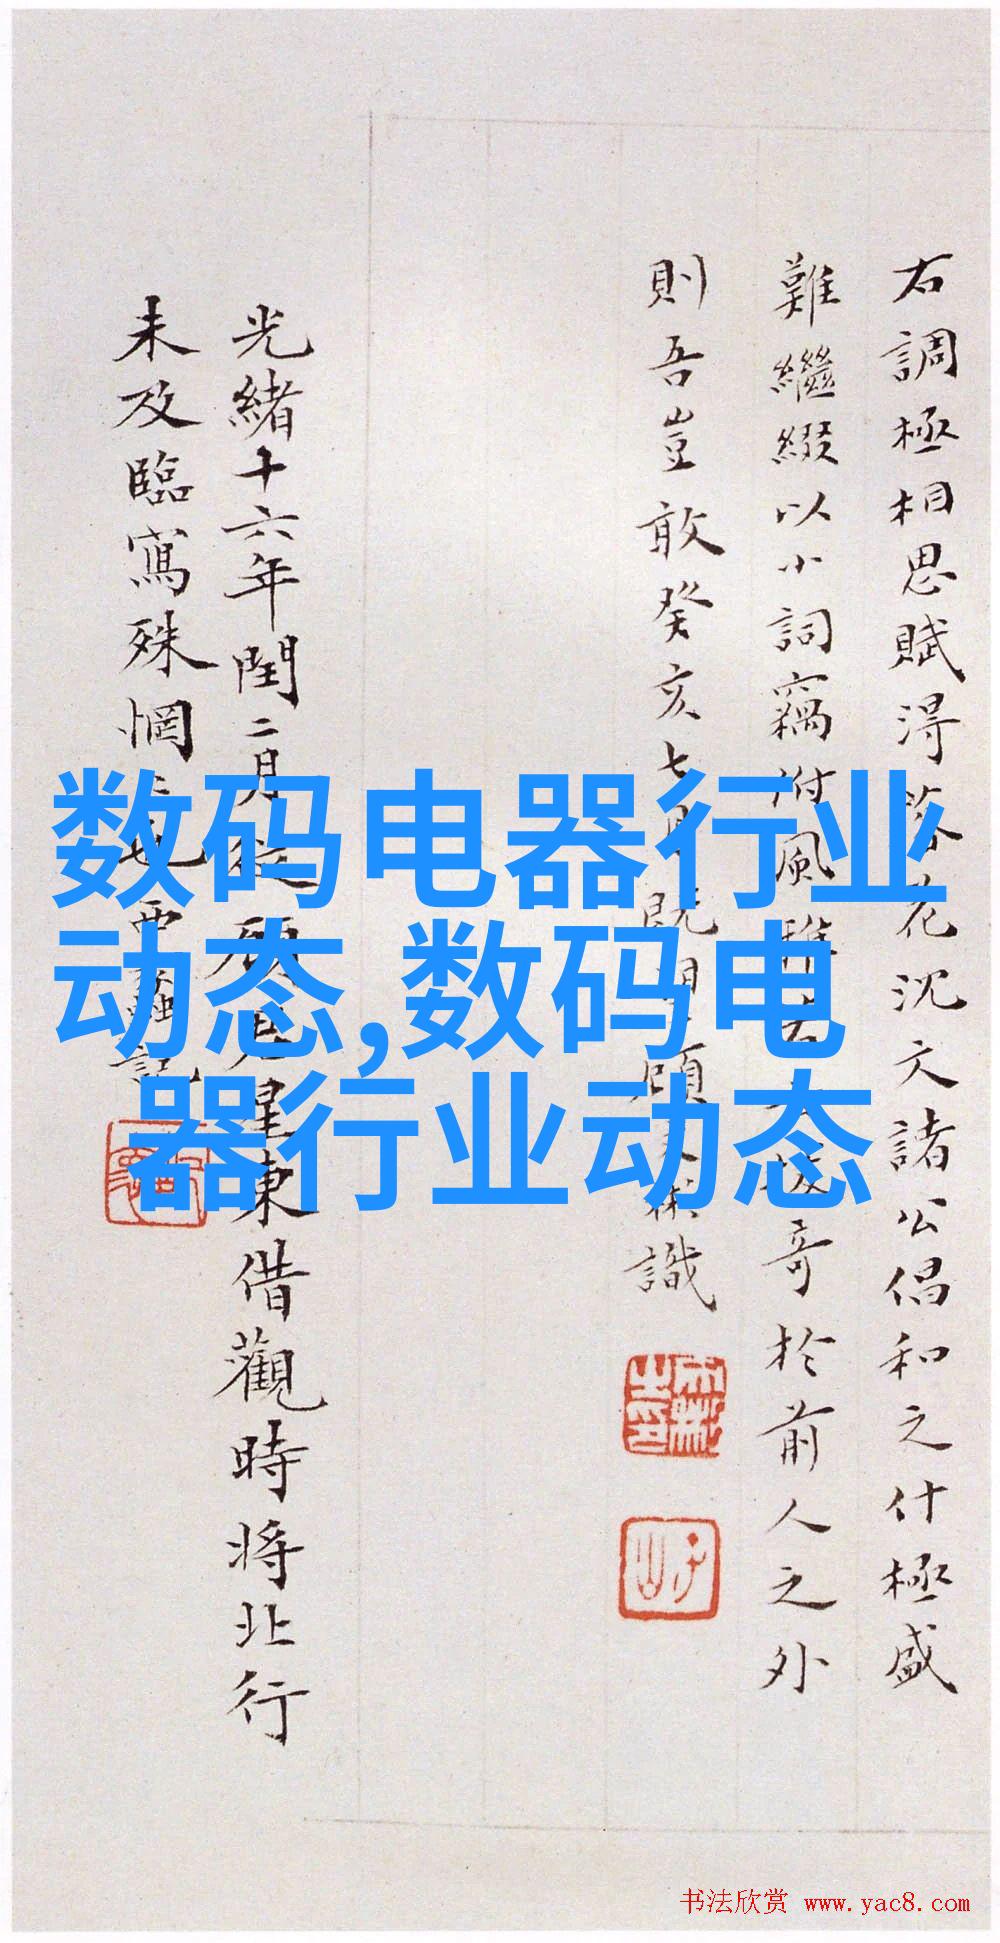 右調極相思賦得落花沈文諸公倡和之什極盛
難繼綴以小詞竊附風雅
哥於前人之外
則吾豈敢癸亥七月既
識
光緒十六年閏二月從
星東借觀時將北行
未及臨寫殊惘
記
数码电器行业
动态,数码电
器行业动态
书法欣赏 www.yac8.com